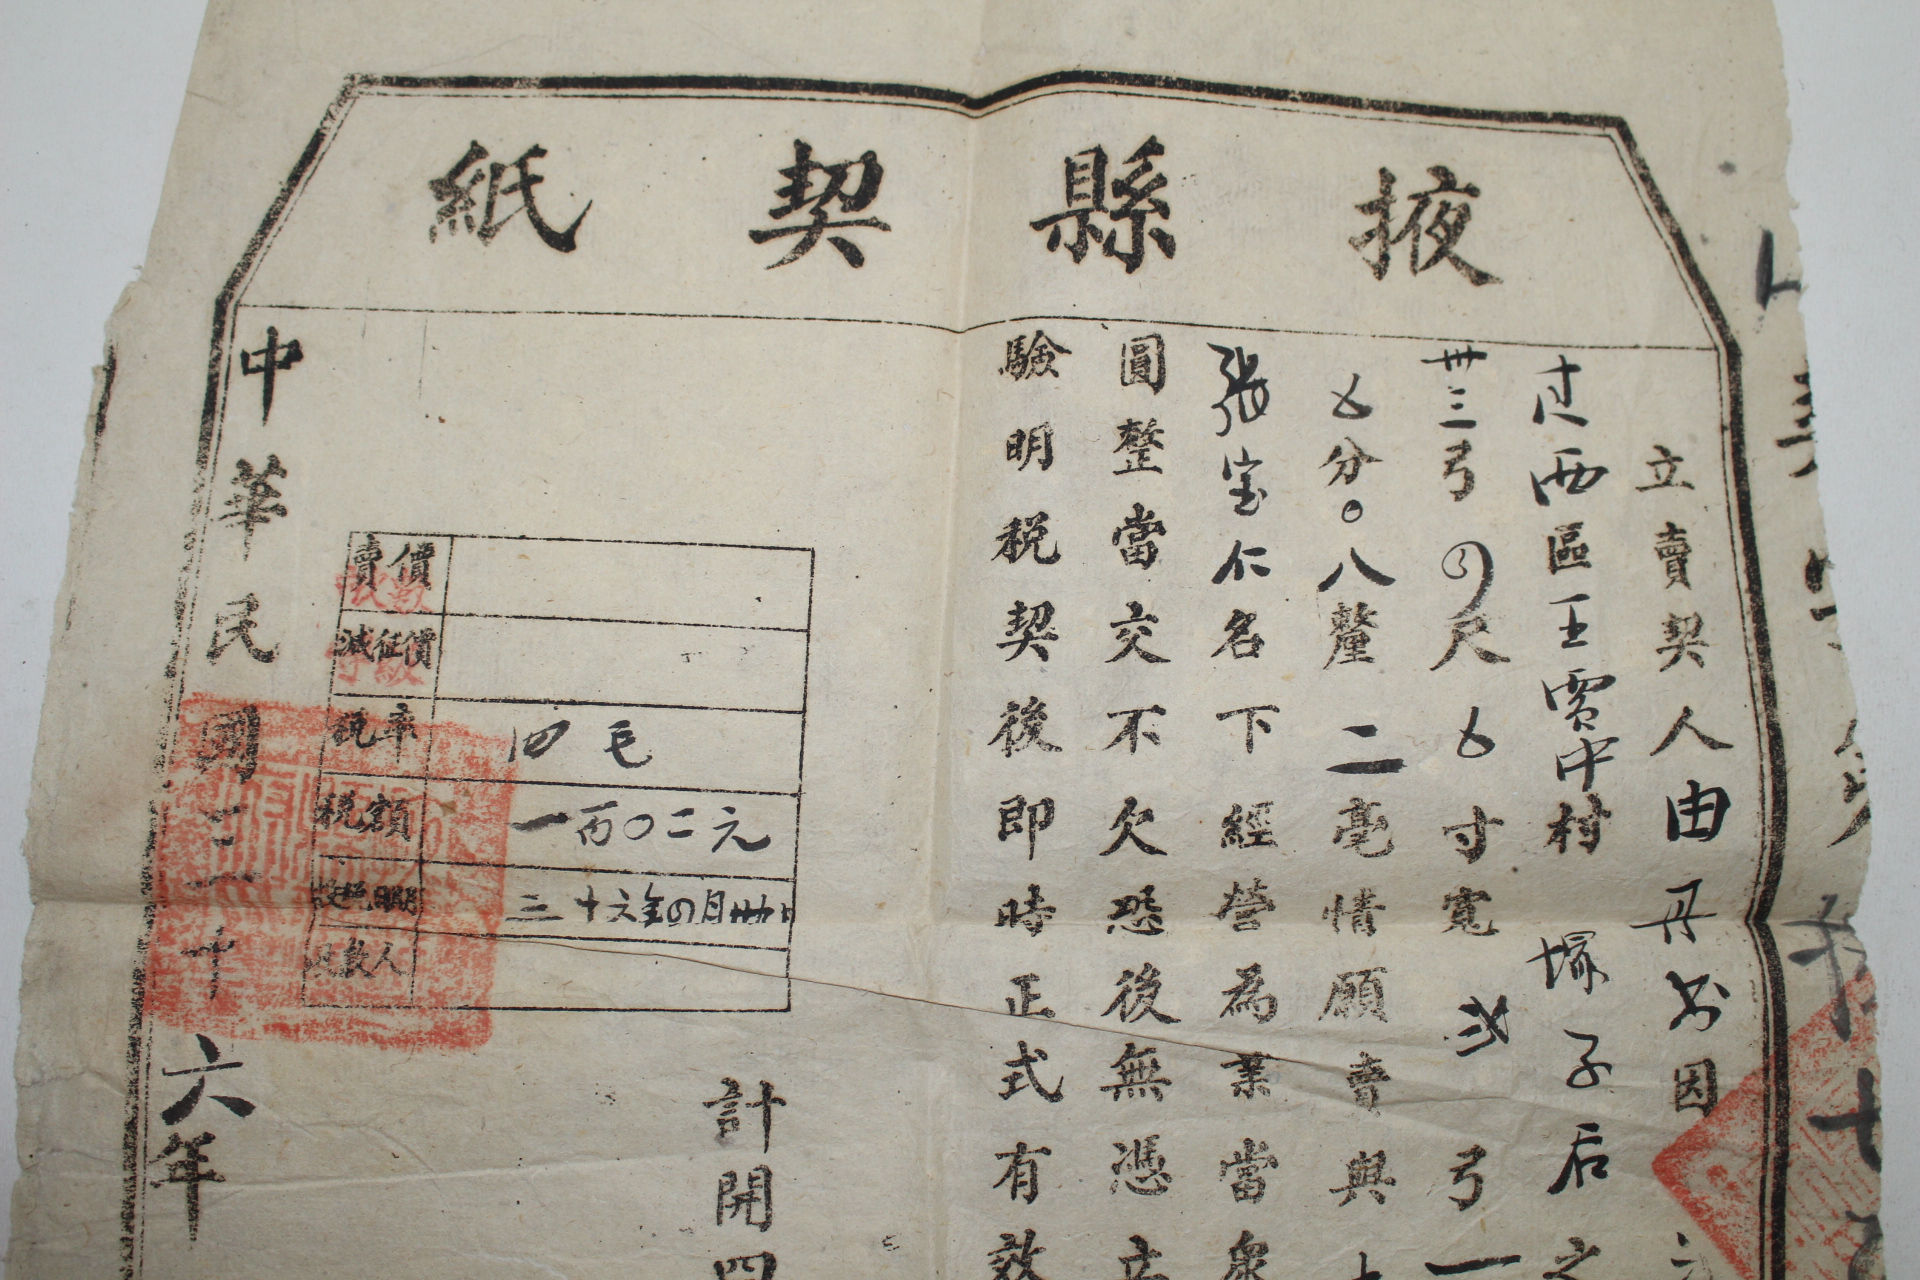 掖縣契紙
立賣契人由丹書因
西區王賈中村塚子后之
卅三弓〤尺〥寸寬弍弓一
〥分〇八釐二毫情願賣與
張宝仁名下經營為業當眾
圓整當交不欠恐後無憑立
驗明税契後即時正式有效
計開四
賣價
减征價
税率 四毛
税額 一百〇二元
税日期 三十六年〤月卅日
收款人
中華民國三十六年